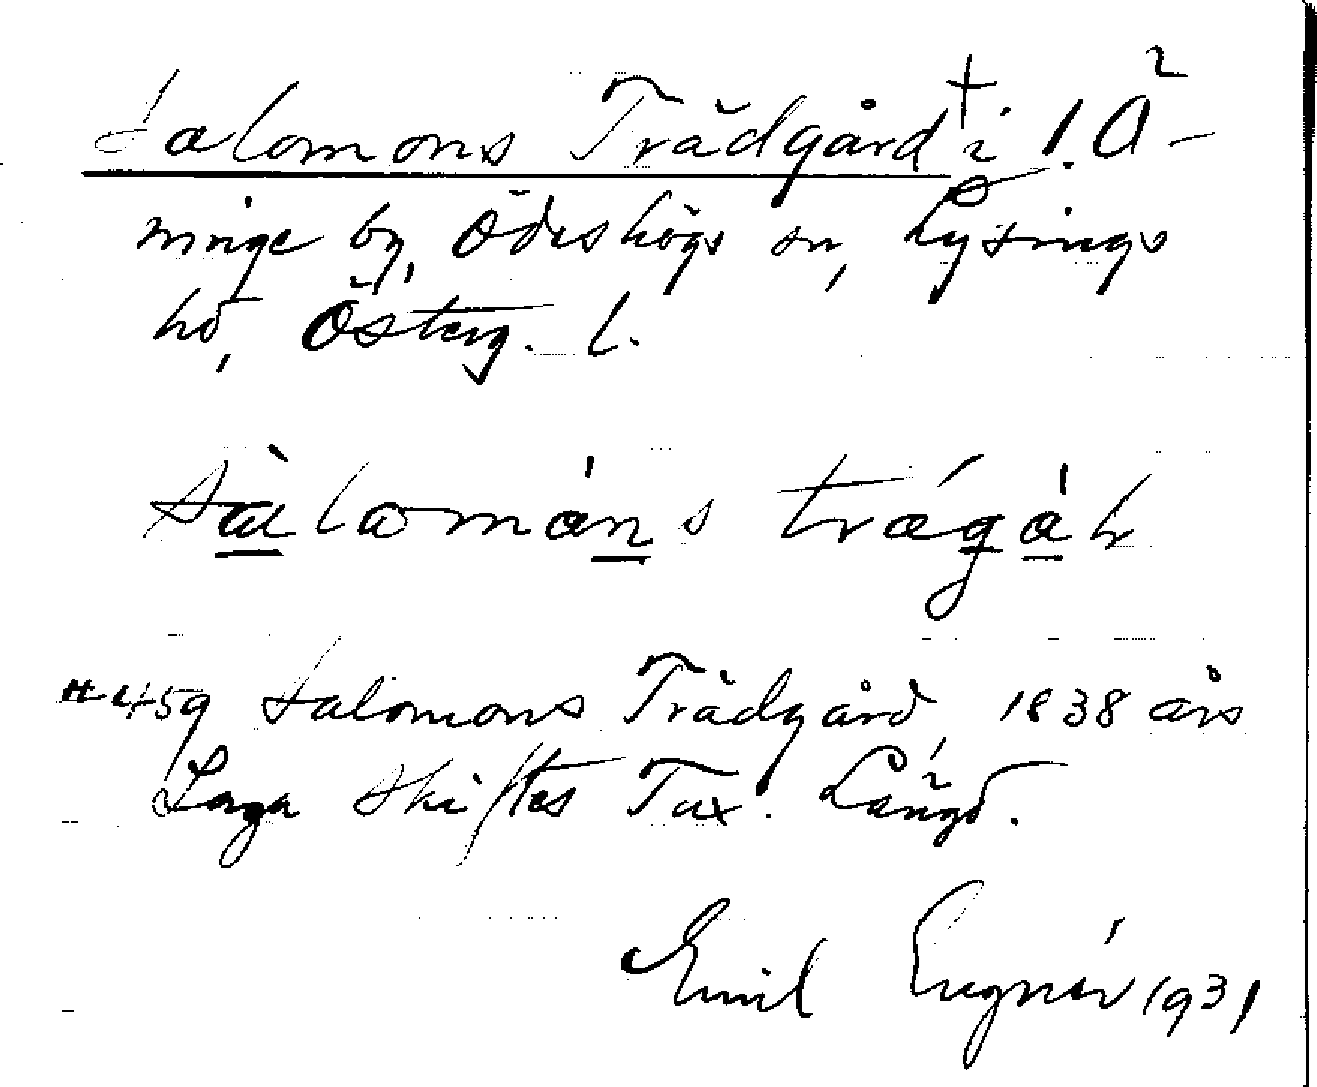 Salomons Trädgård † i 1. Ö-
minge by, Ödeshögs sn, Lysings
hd, Österg. l.
sàlománs trágȧh
#459 Salomons Trädgård, 1838 års
Laga Skiftes Tax. Längd.
Emil Engnér 1931